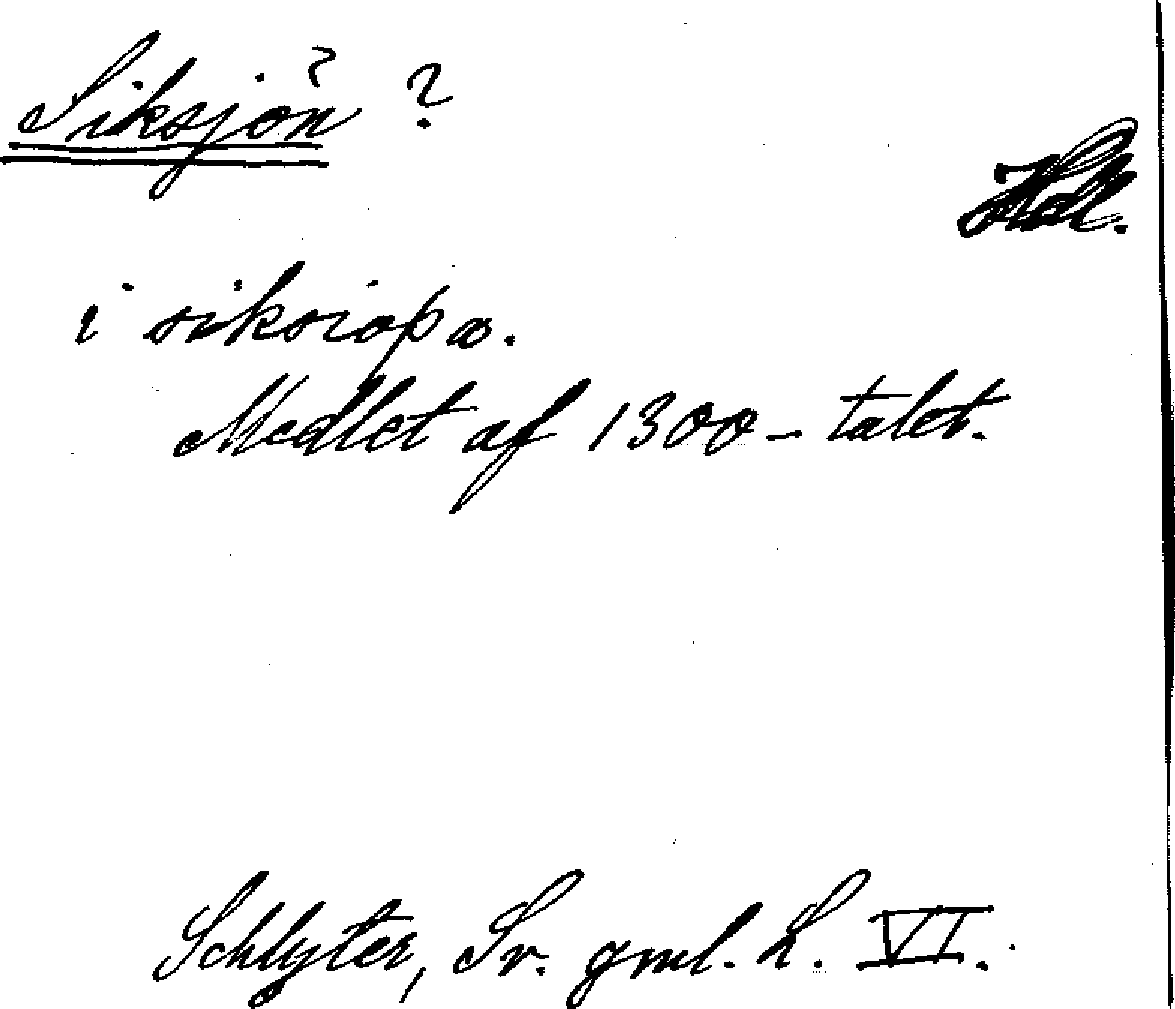 Siksjön ?
Häl.
i siksiopa.
Medlet af 1300-talet.
Schlyter, Sv. gml. L. VI.